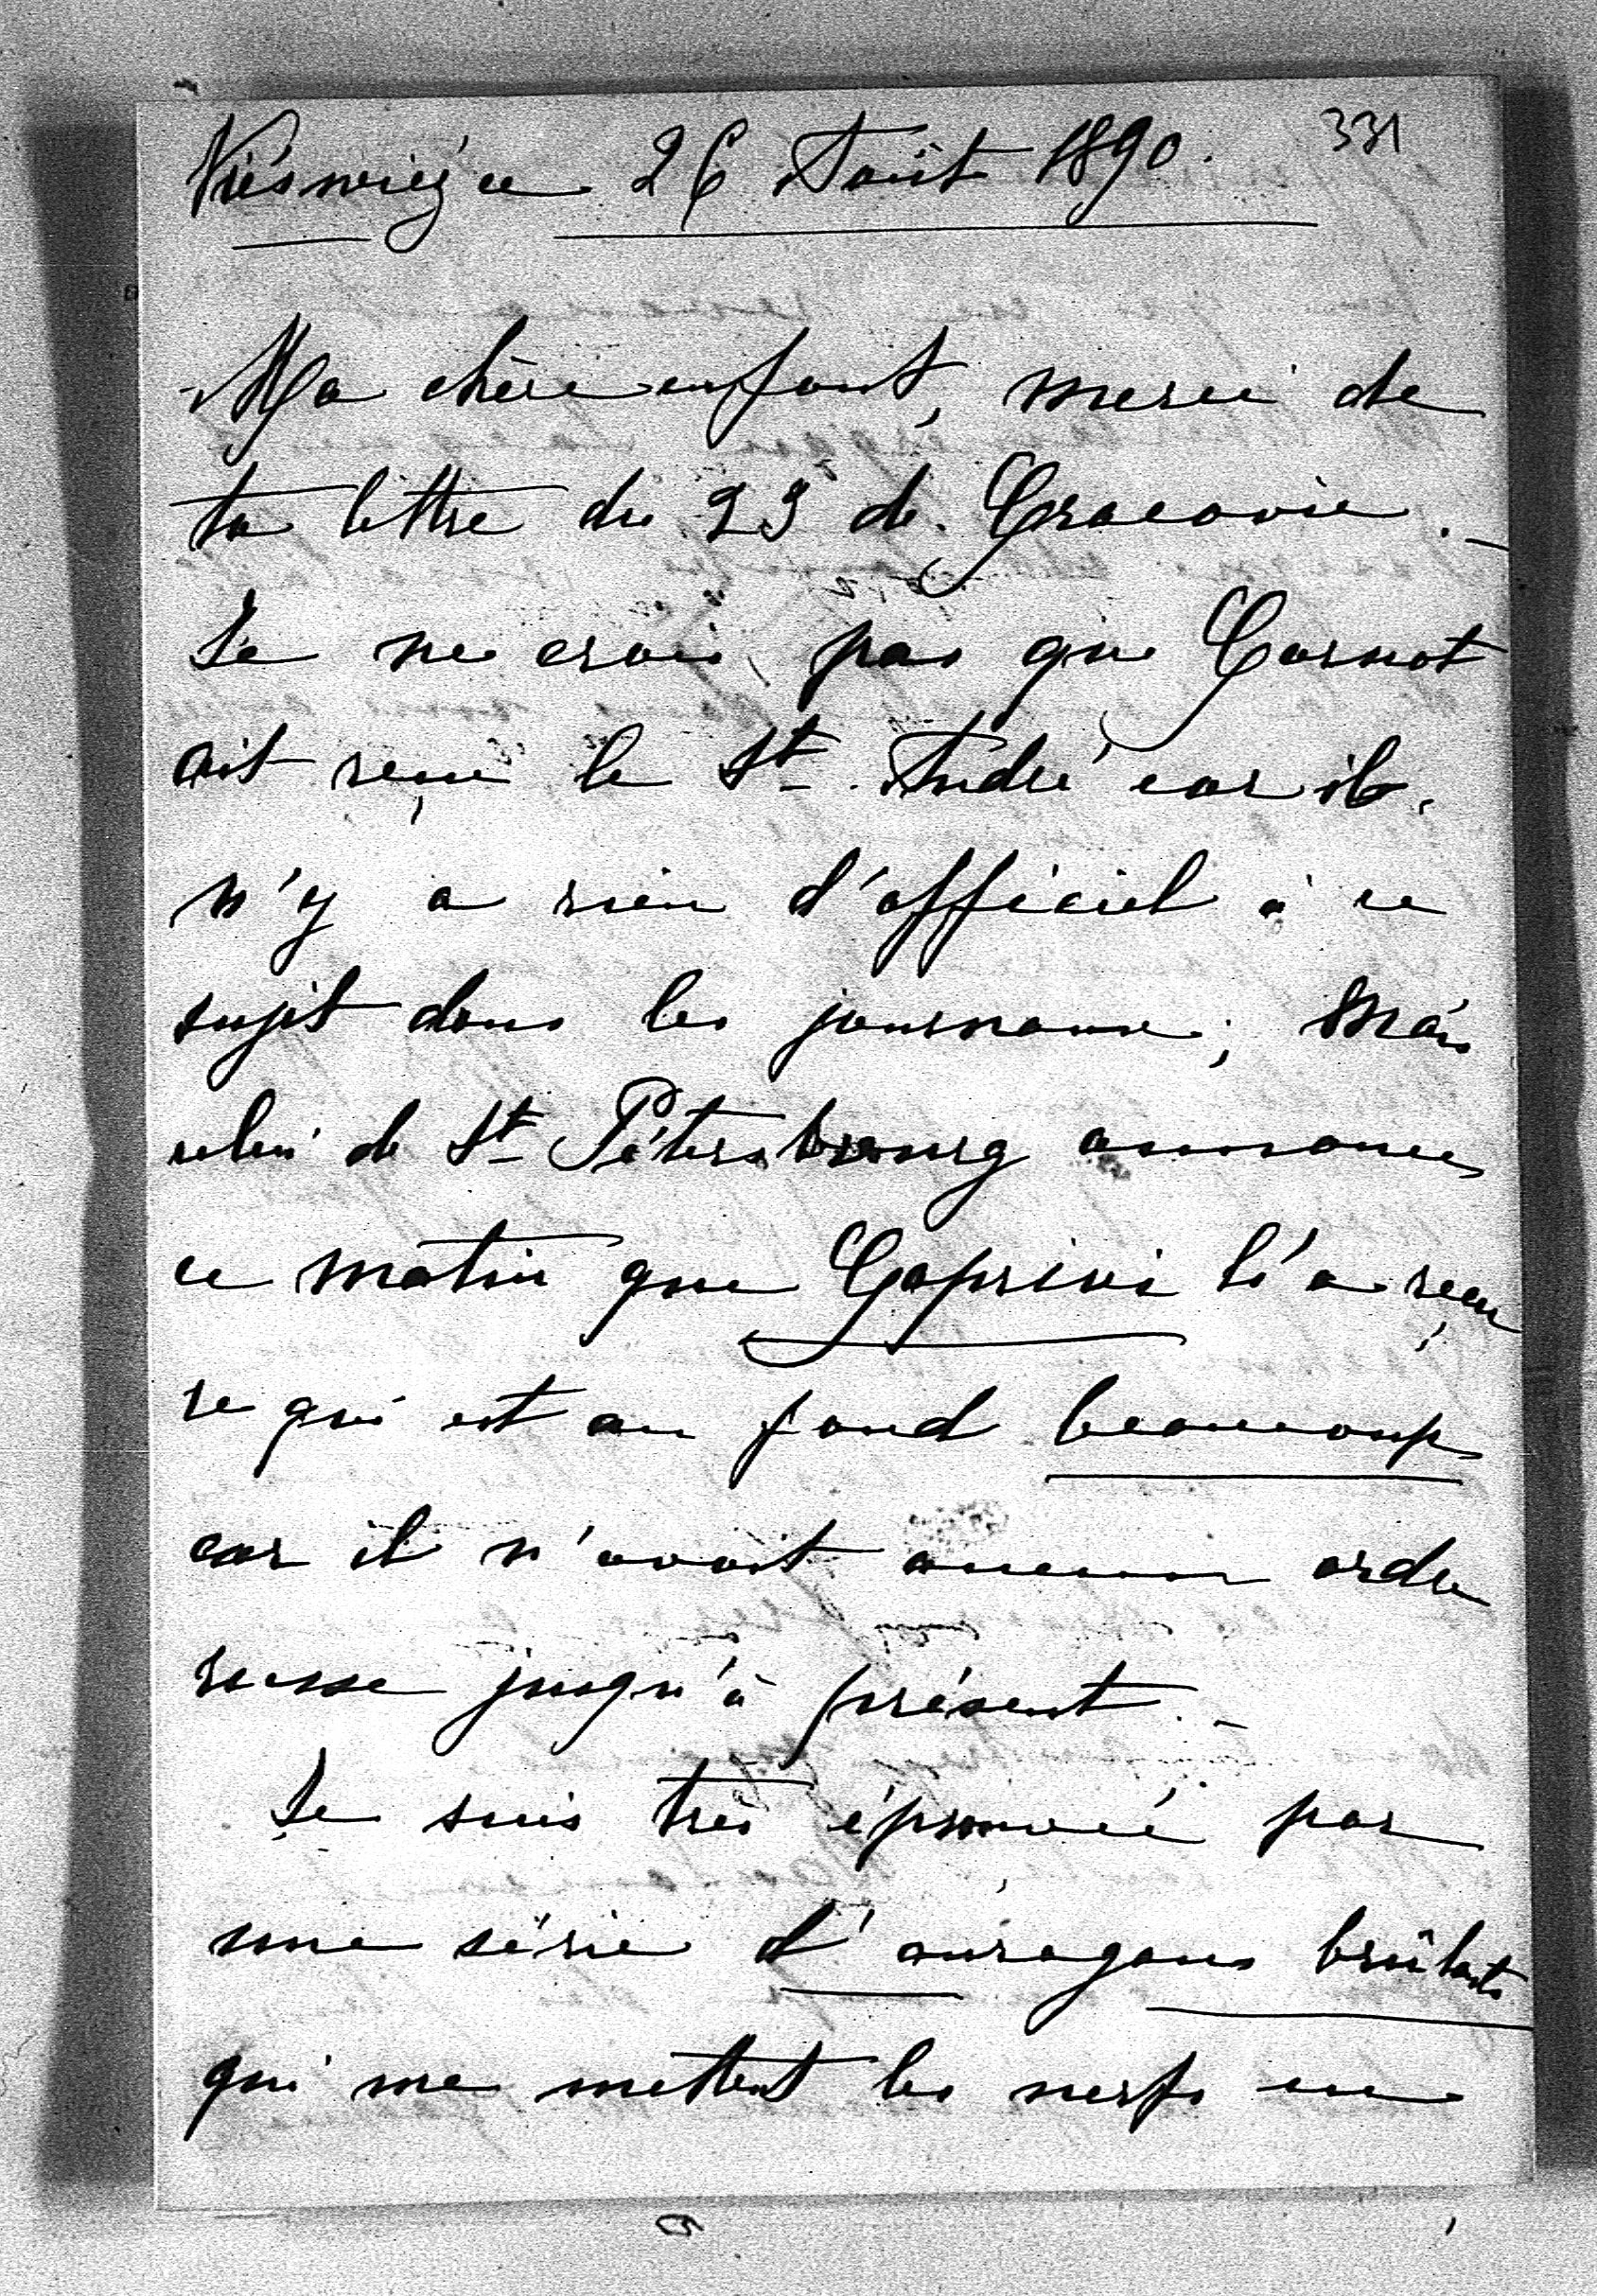 331
Niéswiéz ce 26 Août 1890.
Ma chère enfant, merci de
ta lettre du 23 de Cracovie. –
Je ne crois pas que Carnot
ait reçu le St. André car il
n'y a rien d'officiel à ce
sujet dans les journaux; Mais
celui de St. Pétersbourg annonce
ce matin que Caprivi l'a reçu
ce qui est au fond beaucoup
car il n'avait aucun ordre
russe jusqu'à présent. –
Je suis très éprouvé par
une série d'ouragans brûlants
qui me mettent les nerfs en